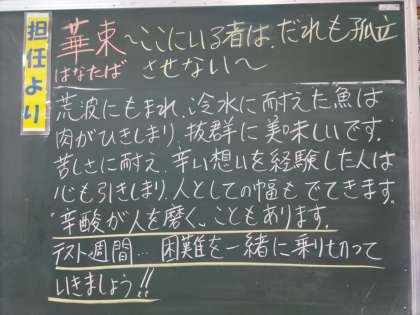 担任より
華束 ～ここにいる者は、だれも孤立
はなたば させない～
荒波にもまれ、冷水に耐えた魚は
肉がひきしまり、抜群に美味しいです。
苦しさに耐え、辛い想いを経験した人は
心も引きしまり、人としての幅もでてきます。
"辛酸が人を磨く"こともあります。
テスト週間…困難を一緒に乗り切って
いきましょう!!